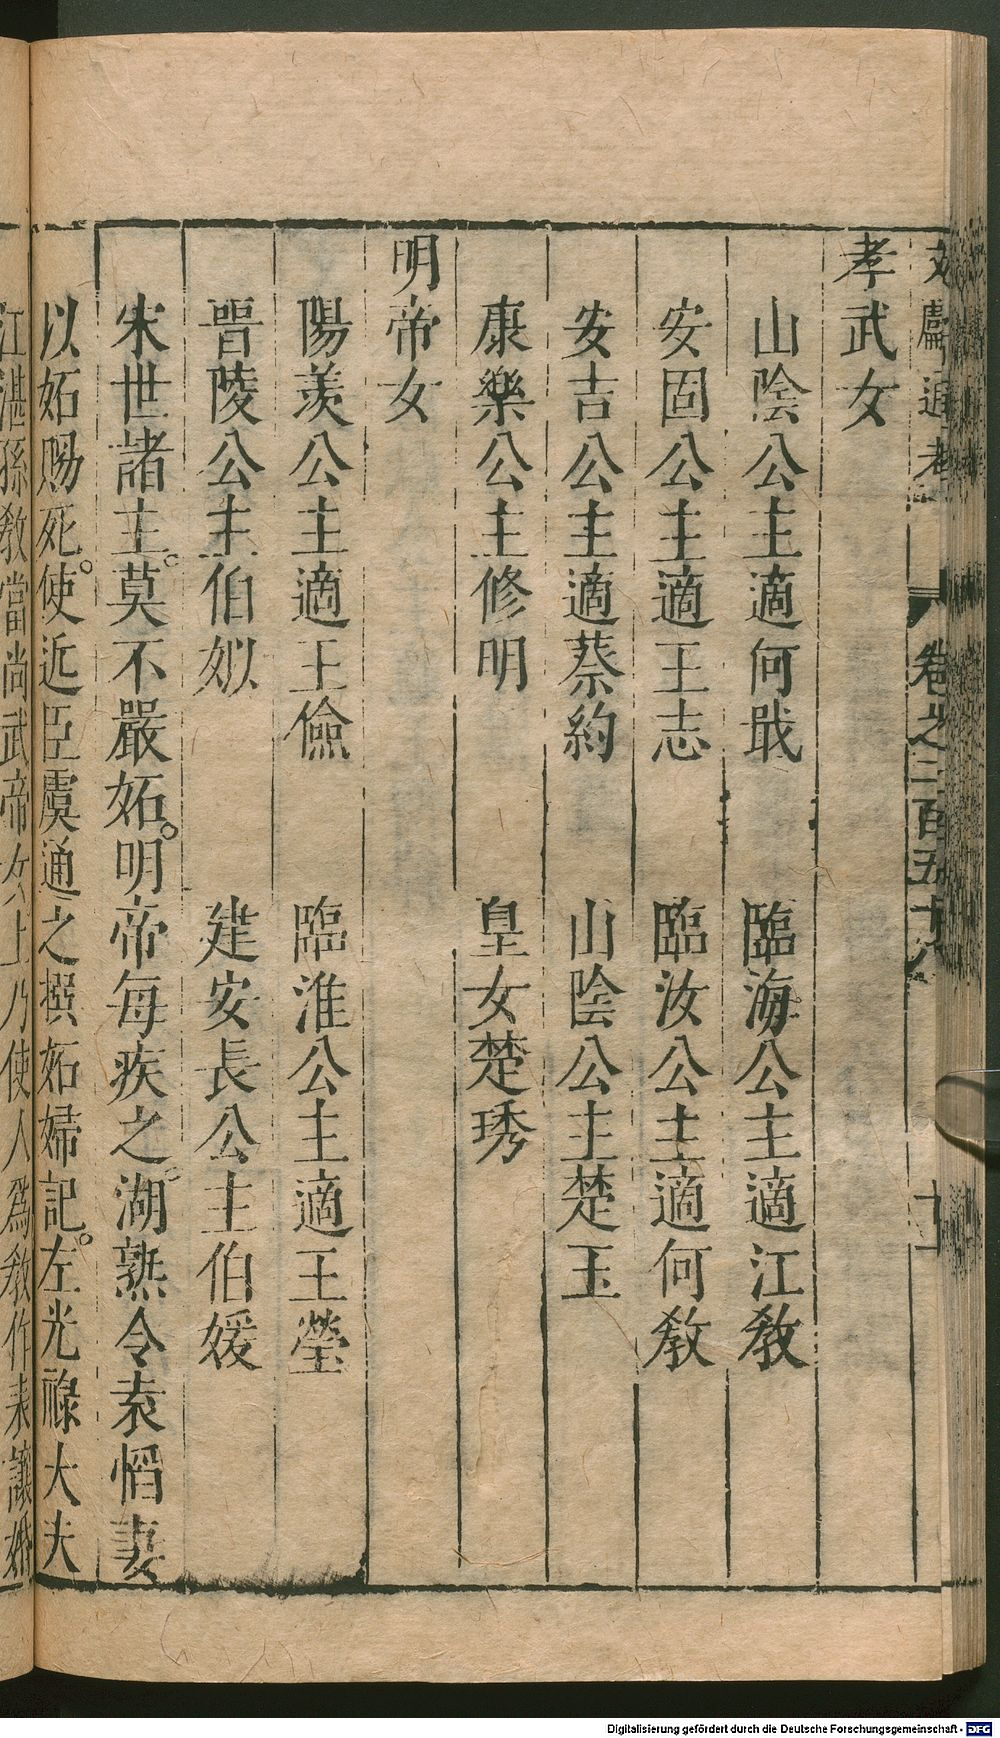 文獻通考 卷之二百五十八 十一
孝武女
山陰公主適何戢 臨海公主適江斆
安固公主適王志 臨汝公主適何斆
安吉公主適蔡約 山陰公主楚玉
康樂公主修明 皇女楚琇
明帝女
陽羨公主適王儉 臨淮公主適王瑩
晉陵公主伯姒 建安長公主伯媛
宋世諸主。莫不嚴妬。明帝每疾之。湖熟令袁慆妻
以妬賜死。使近臣虞通之撰妬婦記。左光祿大夫
江湛孫斆當尚武帝女上乃使人爲斆作表讓婚
Digitalisierung gefördert durch die Deutsche Forschungsgemeinschaft - DFG